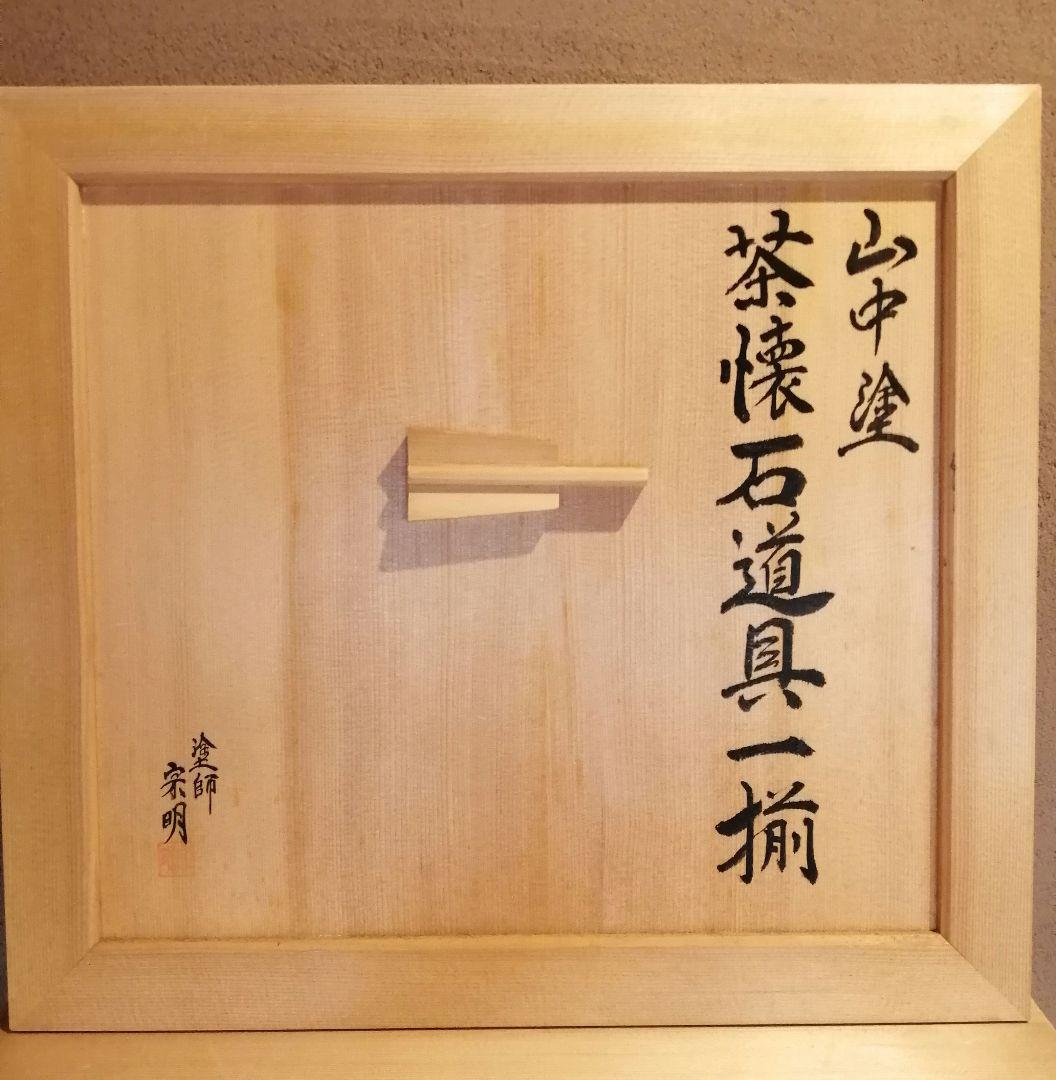 山中塗
茶懐石道具一揃
塗師
宗明